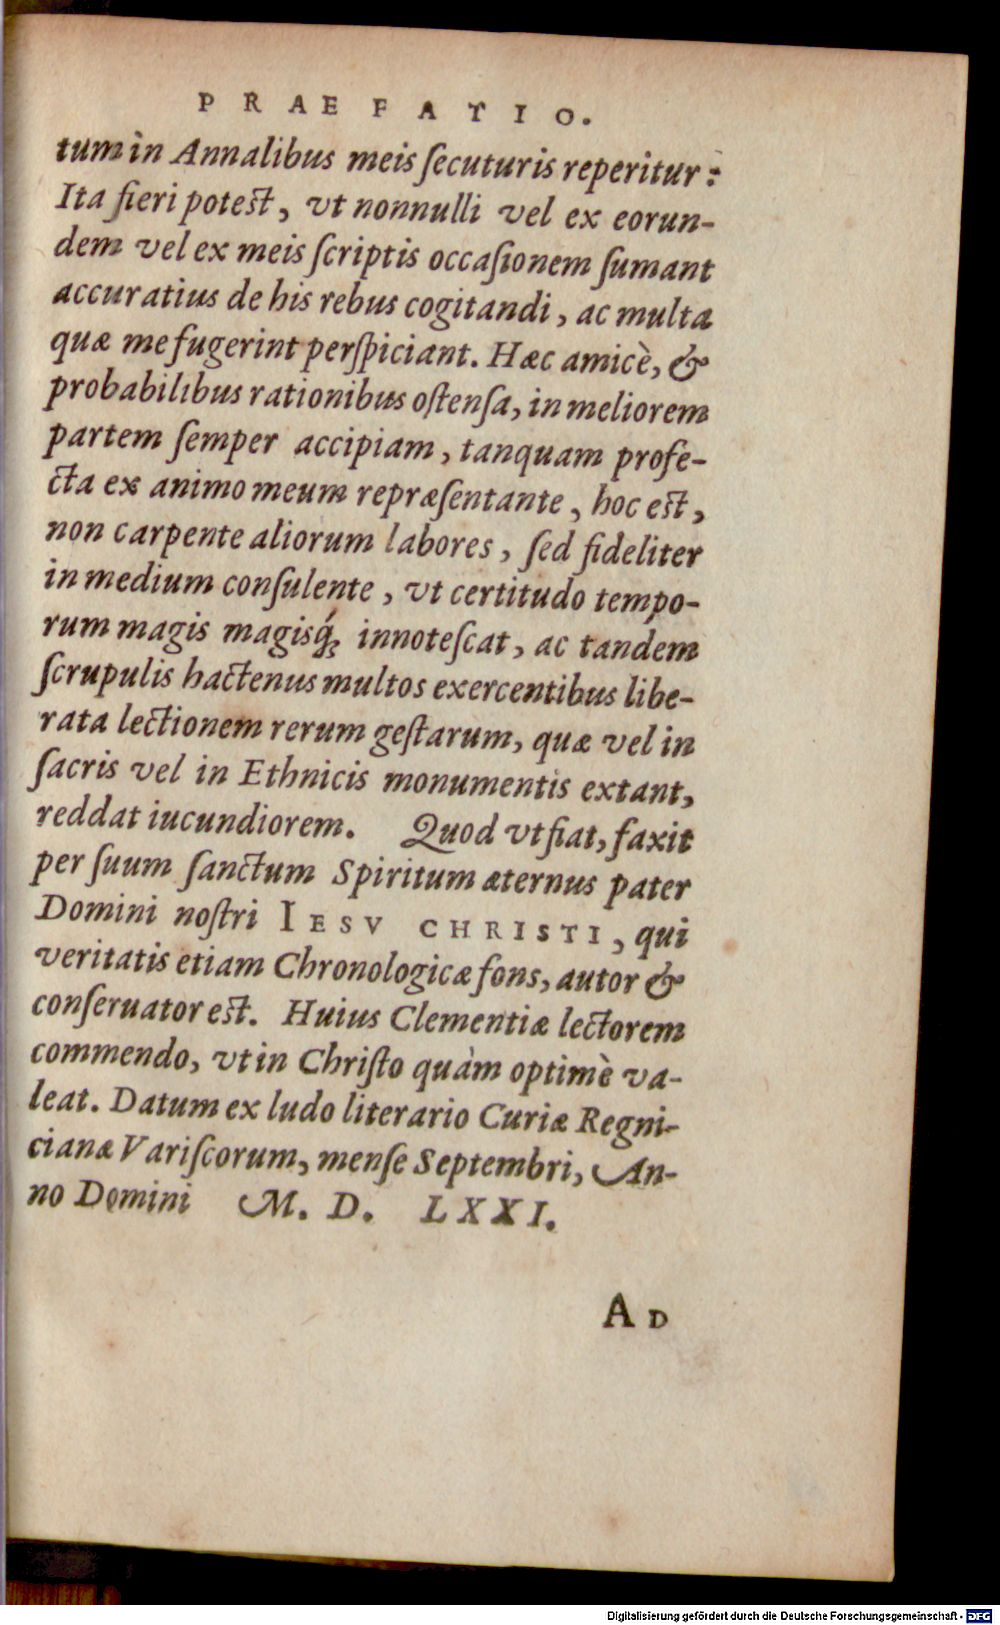 PRAEFATIO.
tum in Annalibus meis ſecuturis reperitur:
Ita fieri poteſt, vt nonnulli vel ex eorun-
dem vel ex meis ſcriptis occaſionem ſumant
accuratius de his rebus cogitandi, ac multa
quæ me fugerint perſpiciant. Hæc amicè, &
probabilibus rationibus oſtenſa, in meliorem
partem ſemper accipiam, tanquam profe-
cta ex animo meum repræſentante, hoc eſt,
non carpente aliorum labores, ſed fideliter
in medium conſulente, vt certitudo tempo-
rum magis magisq́ꝫ innoteſcat, ac tandem
ſcrupulis hactenus multos exercentibus libe-
rata lectionem rerum geſtarum, quæ vel in
ſacris vel in Ethnicis monumentis extant,
reddat iucundiorem. Quod vt fiat, faxit
per ſuum ſanctum Spiritum æternus pater
Domini noſtri IESV CHRISTI, qui
veritatis etiam Chronologicæ fons, autor &
conſeruator eſt. Huius Clementiæ lectorem
commendo, vt in Chriſto quàm optimè va-
leat. Datum ex ludo literario Curiæ Regni-
cianæ Variſcorum, menſe Septembri, An-
no Domini M. D. LXXI.
AD
Digitalisierung gefördert durch die Deutsche Forschungsgemeinschaft - DFG